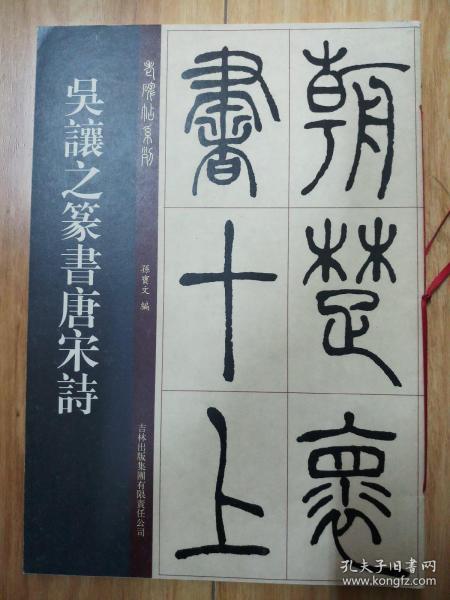 吳讓之篆書唐宋詩
老碑帖系列
孫寶文 編
吉林出版集團有限責任公司
朝楚懷
書十上
孔夫子旧书网
www.kongfz.com